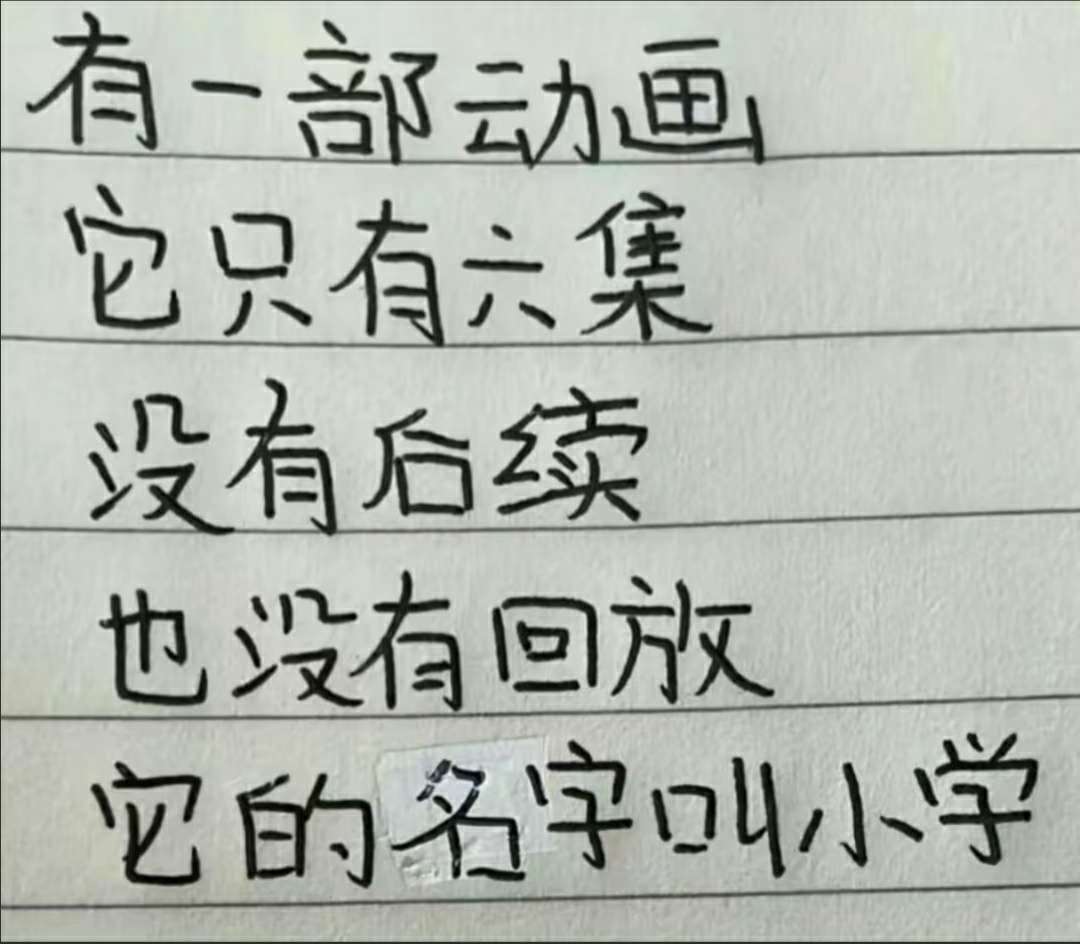 有一部动画
它只有六集
没有后续
也没有回放
它的名字叫小学